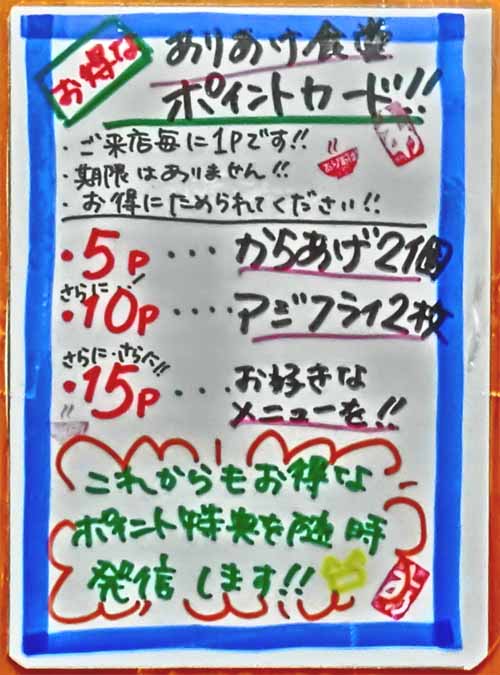 お得な
ありあけ食堂
ポイントカード!!
・ご来店毎に1Pです!!
・期限はありません!!
・お得にためられてください!!
・5P・・・からあげ2個
さらに・・!
・10P・・・・アジフライ2枚
さらに・さらに!!
・15P・・・お好きな
メニューを!!
これからもお得な
ポイント特典を随時
発信します!!